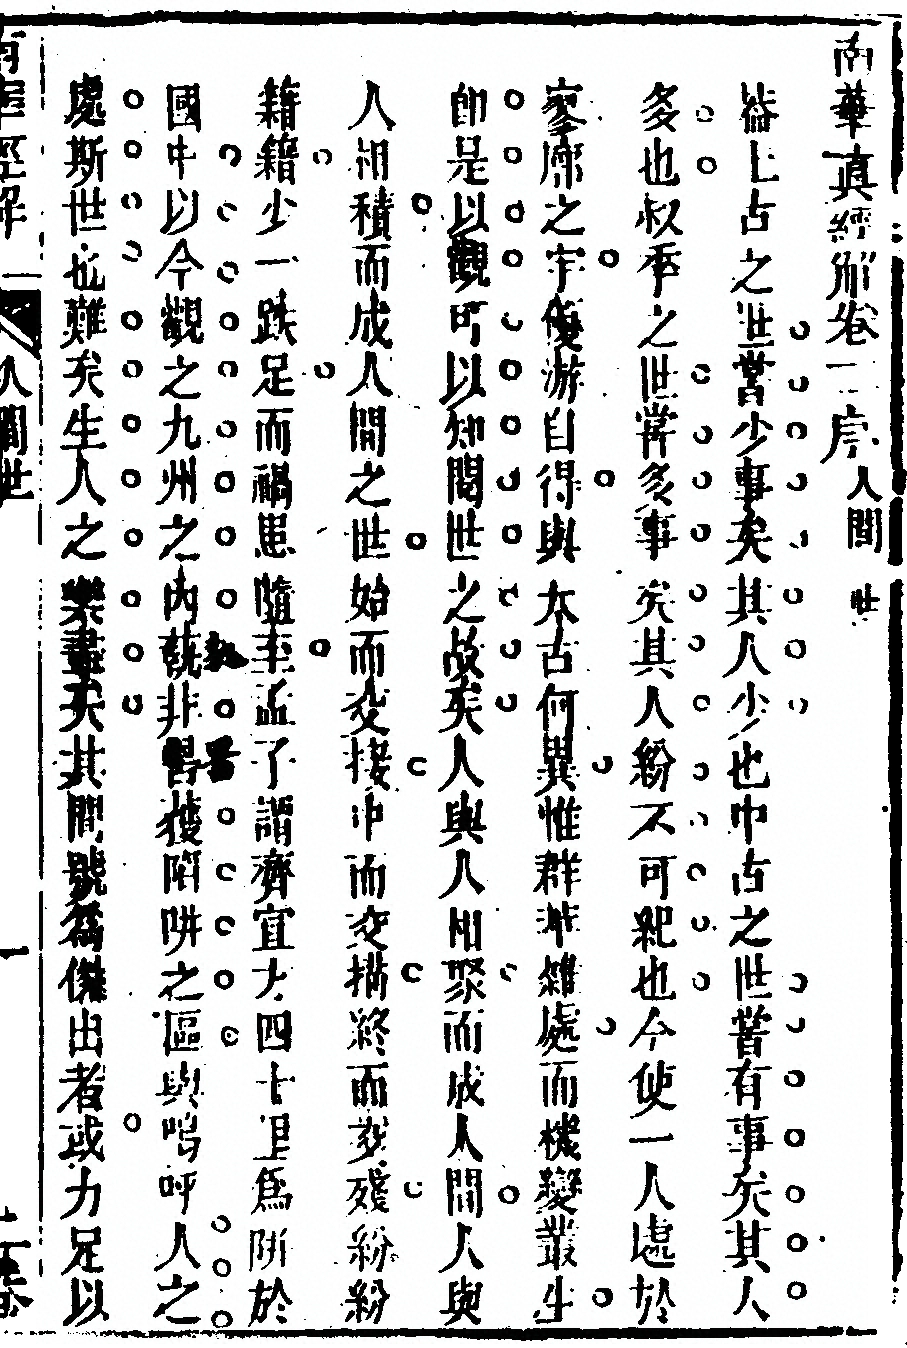 南華真經解卷一序 人間世
上古之世嘗少事矣其人少也中古之世嘗有事矣其人
多也叔季之世嘗多事矣其人紛不可紀也今使一人處於
寥廓之宇優游自得與太古何異惟群萃雜處而機變叢生
卽是以觀可以知閱世之故矣人與人相聚而成人間人與
人相積而成人間之世始而交接中而交搆終而交殘紛紛
籍籍少一跌足而禍患隨至孟子謂齊宣大四十里爲阱於
國中以今觀之九州之內孰非罟擭陷阱之區與嗚呼人之
處斯世也難矣生人之樂盡矣其間號爲傑出者或力足以
人間世